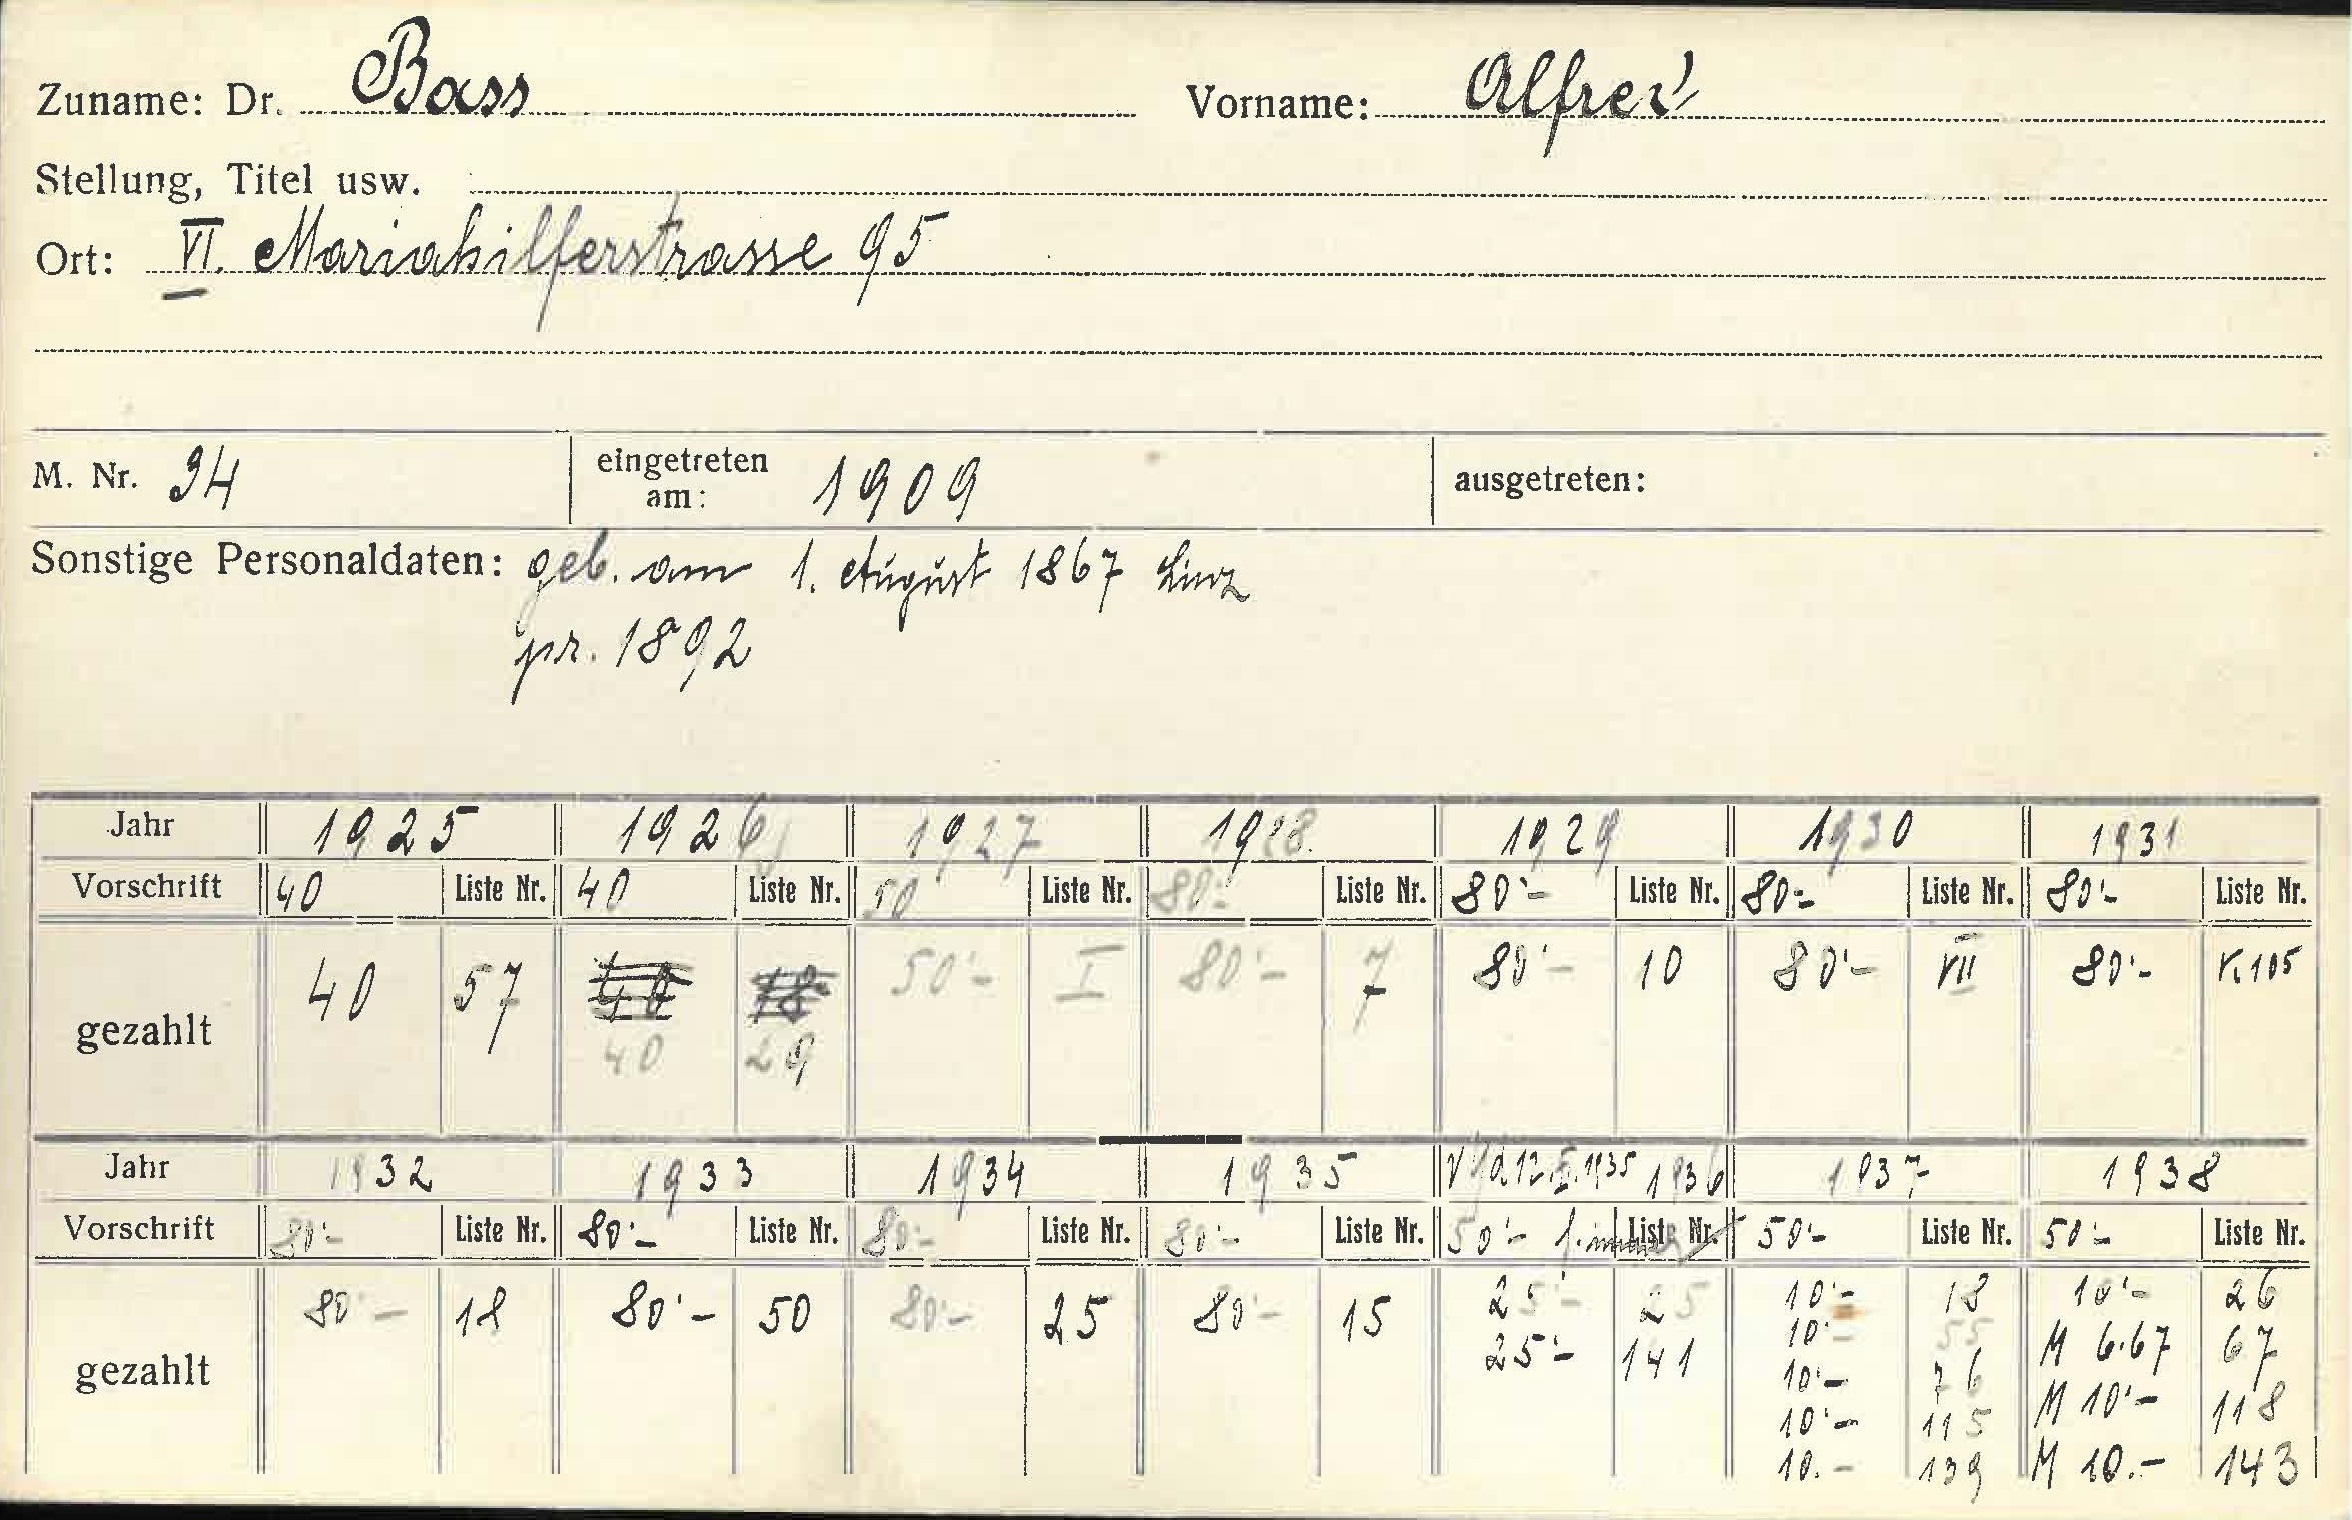 Zuname: Dr. Bass Vorname: Alfred
Stellung, Titel usw.
Ort: VI. Mariahilferstrasse 95
M. Nr. 34 eingetreten am: 1909 ausgetreten:
Sonstige Personaldaten: geb. am 1. August 1867 Linz
pr. 1892
Jahr 1925 1926 1927 1928 1929 1930 1931
Vorschrift 40 Liste Nr. 40 Liste Nr. 50 Liste Nr. 80'- Liste Nr. 80'- Liste Nr. 80'- Liste Nr. 80'- Liste Nr.
gezahlt 40 57 40 18 50'- I 80'- 7 80'- 10 80'- VII 80'- K. 105
40 29
Jahr 1932 1933 1934 1935 12.II.1935 1936 1937 1938
Vorschrift 80'- Liste Nr. 80'- Liste Nr. 80'- Liste Nr. 80'- Liste Nr. 50'- Liste Nr. 50'- Liste Nr. 50'- Liste Nr.
gezahlt 80'- 18 80'- 50 80'- 25 80'- 15 25'- 25 10'- 18 10'- 26
25'- 141 10'- 55 M 6.67 67
10'- 76 M 10'- 118
10'- 115 M 10.- 143
10.- 139